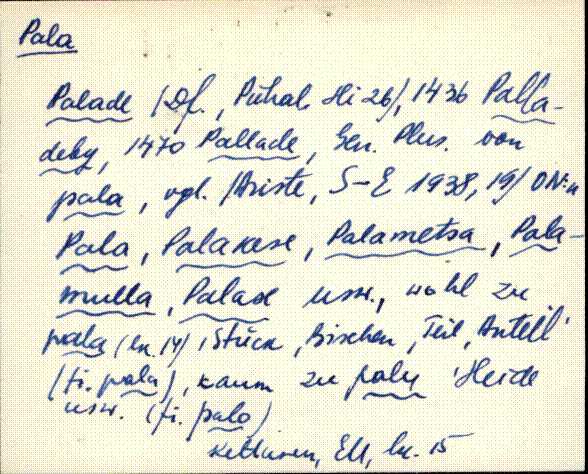 Pala
Palade (Df., Pühal. Hi 26), 1436 Palla-
deby, 1470 Pallade, Gen. Plur. von
pala, vgl. (Ariste, S-E 1938, 19) ON:n
Pala, Palakese, Palametsa, Pala-
mulla, Palase usw., wohl zu
pala (lk. 14) 'Stück, bischen, Teil, Anteil'
(fi. pala), kaum zu palu 'Heide
usw. (fi. palo)
Kettunen, EM, lk. 15